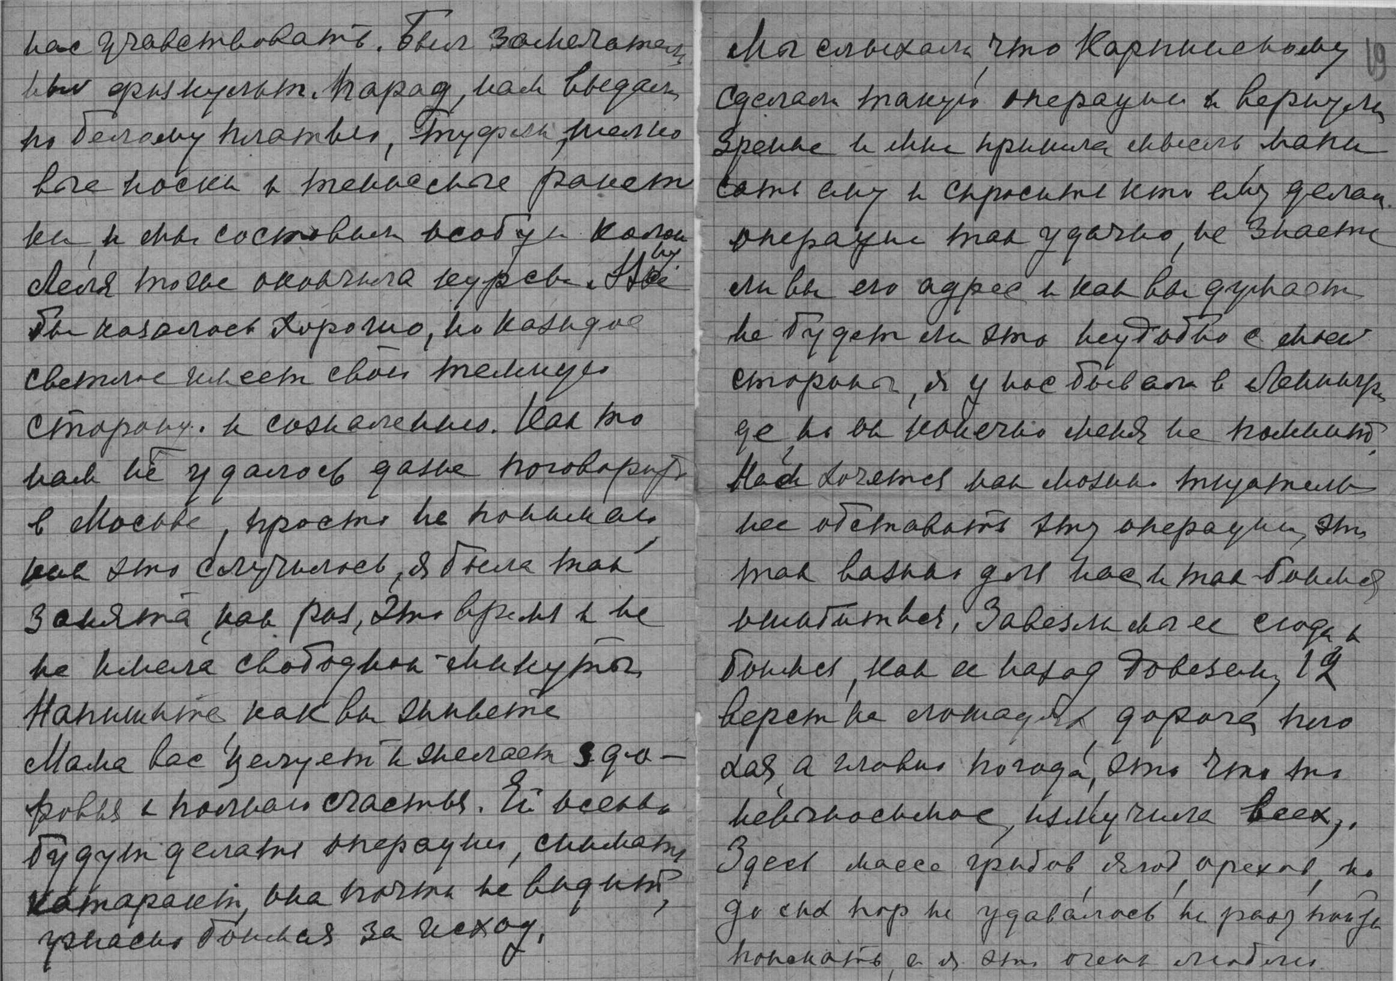 нас учавствовать. Был замечатель
ный физкульт. парад, нам выдали
по белому платью, туфли, шелко
вые носки и теннисные ракет
ки, и мы составили особую колон
ну
Леля тоже окончила курсы. Всё
бы казалось хорошо, но каждое
светлое имеет свою темную
сторону. к сожалению. Как то
нам не удалось даже поговорить
в Москве, просто не понимаю,
как это случилось, я была так
занята, как раз, это время и не
не имела свободной минуты
Напишите, как вы живете
Мама вас целует и желает здо-
ровья и полного счастья. Ей осенью
будут делать операцию, снимать
катаракт, она почти не видит,
ужасно боимся за исход.
19
Мы слыхали, что Карпинскому
сделали такую операцию и вернули
зрение и мне пришла мысль напи
сать ему и спросить кто ему делал
операцию так удачно, не знаете
ли вы его адрес и как вы думаете
не будет ли это неудобно с моей
стороны, я у нас бывал в Ленингра
де, но он конечно меня не помнит.
Нам хочется как можно тщатель
нее обставить эту операцию, это
так важно для нас и так боимся
ошибиться. Завезли мы ее сюда и
боимся, как ее назад довезем, 12
верст на лошадях, дорога пло
хая, а главно погода, это что то
невыносимое, измучила всех,.
Здесь масса грибов, ягод, орехов, но
до сих пор не удавалось ни разу пойти
поискать, а я это очень люблю